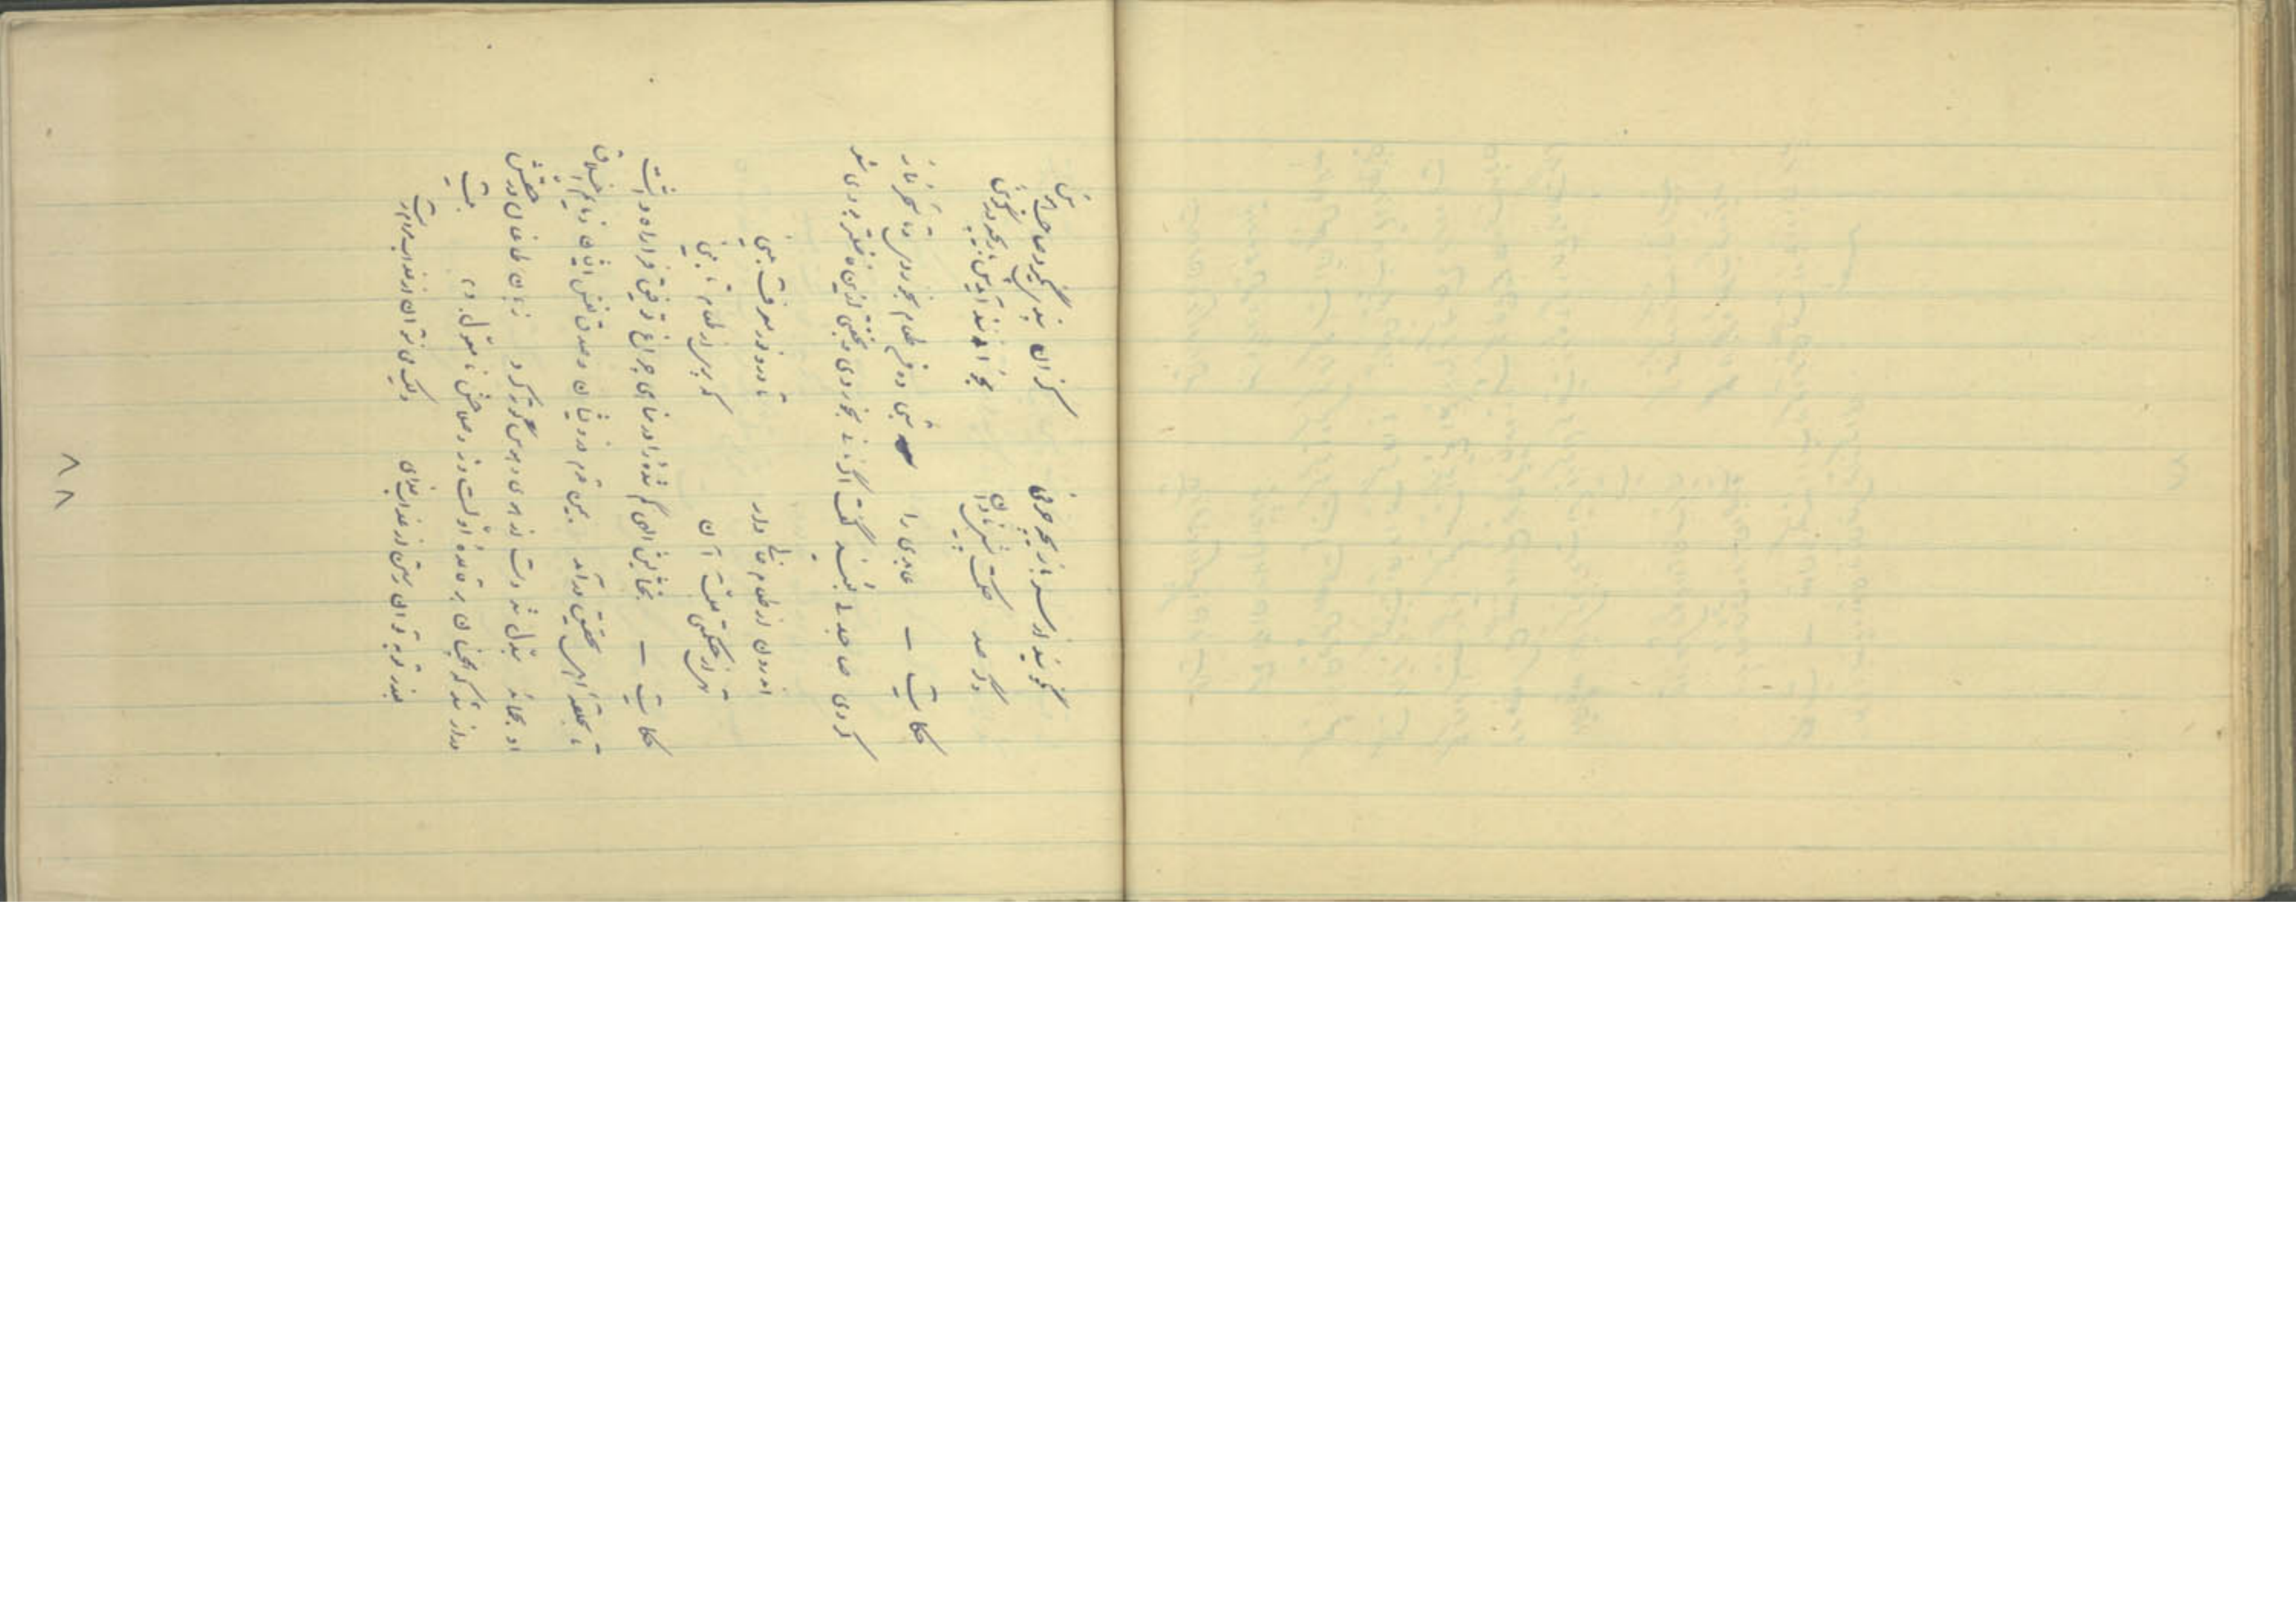 نگویند از سر بازیچه حرفی     کزان پندی نگیرد صاحب هوش
وگر صد حکمت پیش نادان     بخوانند آیدش بازیچه در گوش
حکایت ـ عابدی را     شبی ده من طعام بخوردی و تا سحر نماز
کردی صاحبدلی بشنید گفت اگر نانی بخوردی و بخفتی ازین فاضلتر بودی شعر
اندرون از طعام خالی دار     تا درو نور معرفت بینی
تهی از حکمتی بعلت آن     که پری از طعام تا بینی
حکایت ـ بخشایش الهی گم شده را در مناهی چراغ توفیق فرا راه داشت
تا بحلقه اهل تحقیق در آمد     بیمن قدم درویشان و صدق نفس ایشان ذمایم اخلاق
او بحمائد مبدل شد دست از هوی و هوس کوته کرد     زبان طاعنان در حقش
دراز شد که همچنان بر قاعده اولست و زهد و صلاحش نامعقول     بیت
بعذر توبه توان رستن از عذاب خدای     ولیک می نتوان از عذاب مردم رست
۸۸